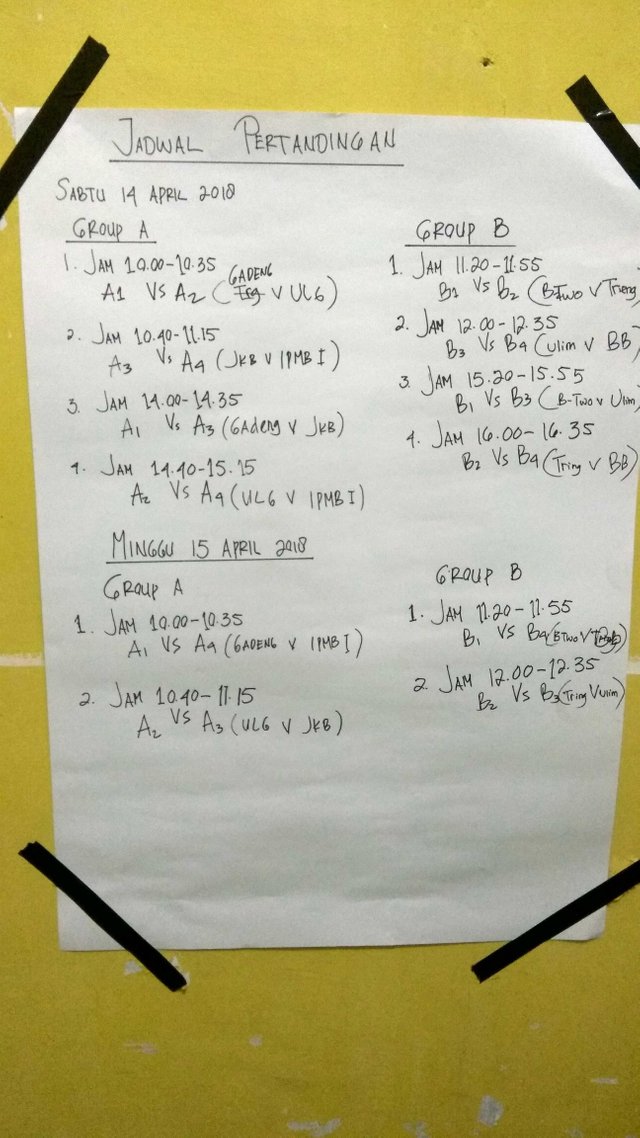 JADWAL PERTANDINGAN
SABTU 14 APRIL 2018
GROUP A
1. JAM 10.00-10.35
A1 VS A2 (GADENG V ULG)
2. JAM 10.40-11.15
A3 Vs A4 (JKB V IPMBI)
3. JAM 14.00-14.35
A1 Vs A3 (GAdeng V JKB)
4. JAM 14.40-15.15
A2 VS A4 (ULG V IPMBI)
GROUP B
1. JAM 11.20-11.55
B1 VS B2 (B-Two V Trieng
2. JAM 12.00-12.35
B3 Vs B4 (Ulim V BB)
3. JAM 15.20-15.55
B1 VS B3 (B-Two V Ulim
4. JAM 16.00-16.35
B2 VS B4 (Tring V BB)
MINGGU 15 APRIL 2018
GROUP A
1. JAM 10.00-10.35
A1 VS A4 (GADENG V IPMBI)
2. JAM 10.40-11.15
A2 VS A3 (ULG V JKB)
GROUP B
1. JAM 11.20-11.55
B1 VS B4 (BTwo V
2. JAM 12.00-12.35
B2 Vs B3 (Tring V Ulim)